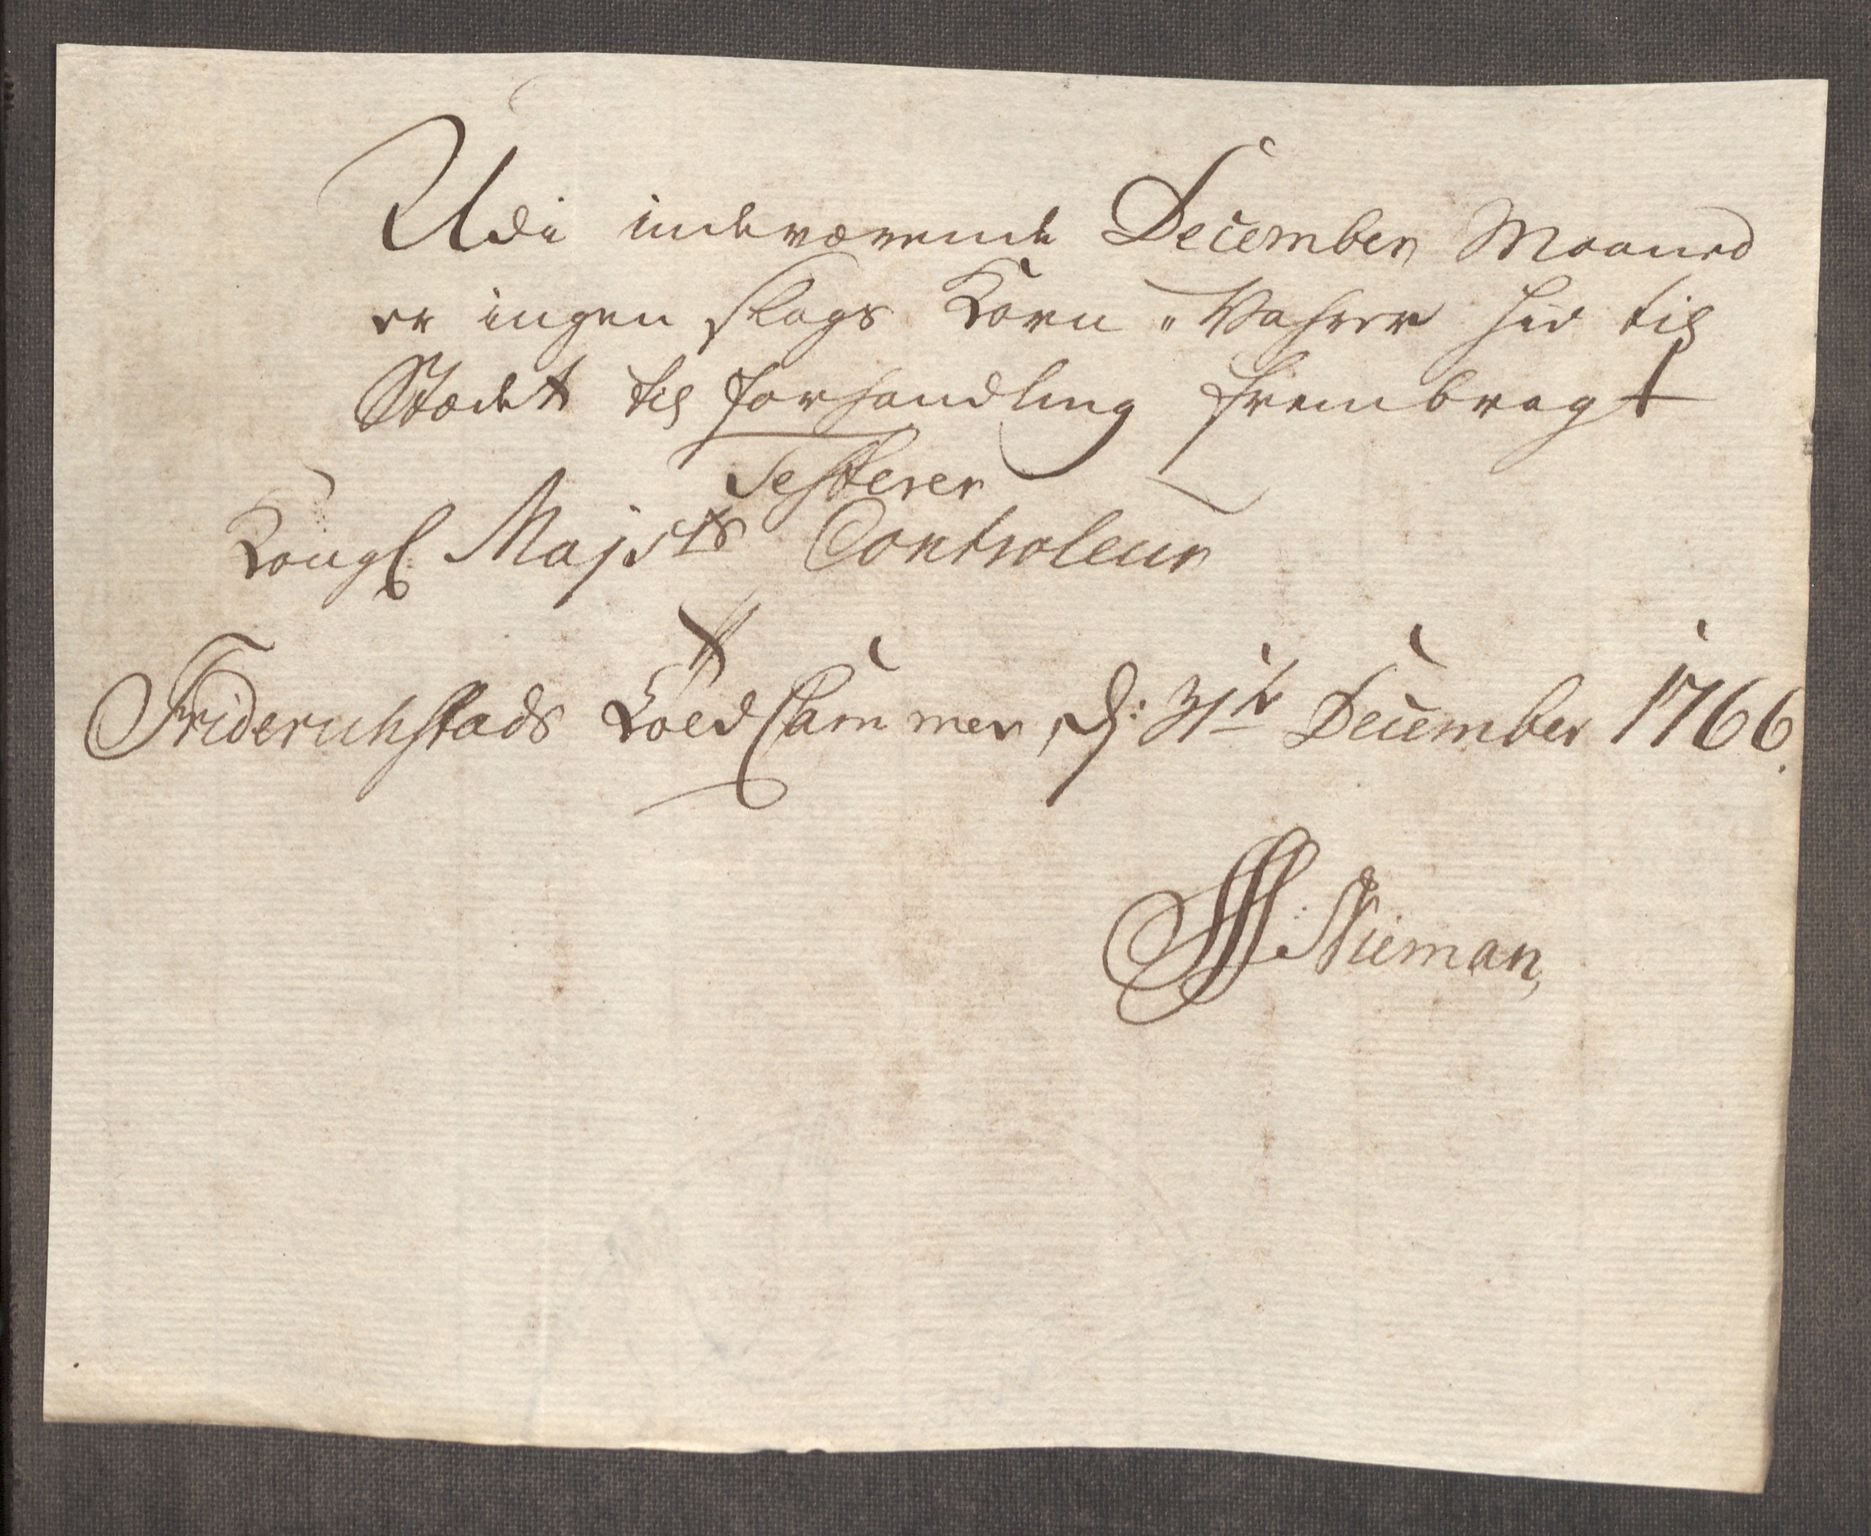 Udi indeværende December Maaned
er ingen slags Korn-Vahrer hid til
Stædet til forhandling frembragt
Testerer
Kongl. Mayts Controleur
Friderichstads Toldkammer, d: 31te December 1766.
Nieman,